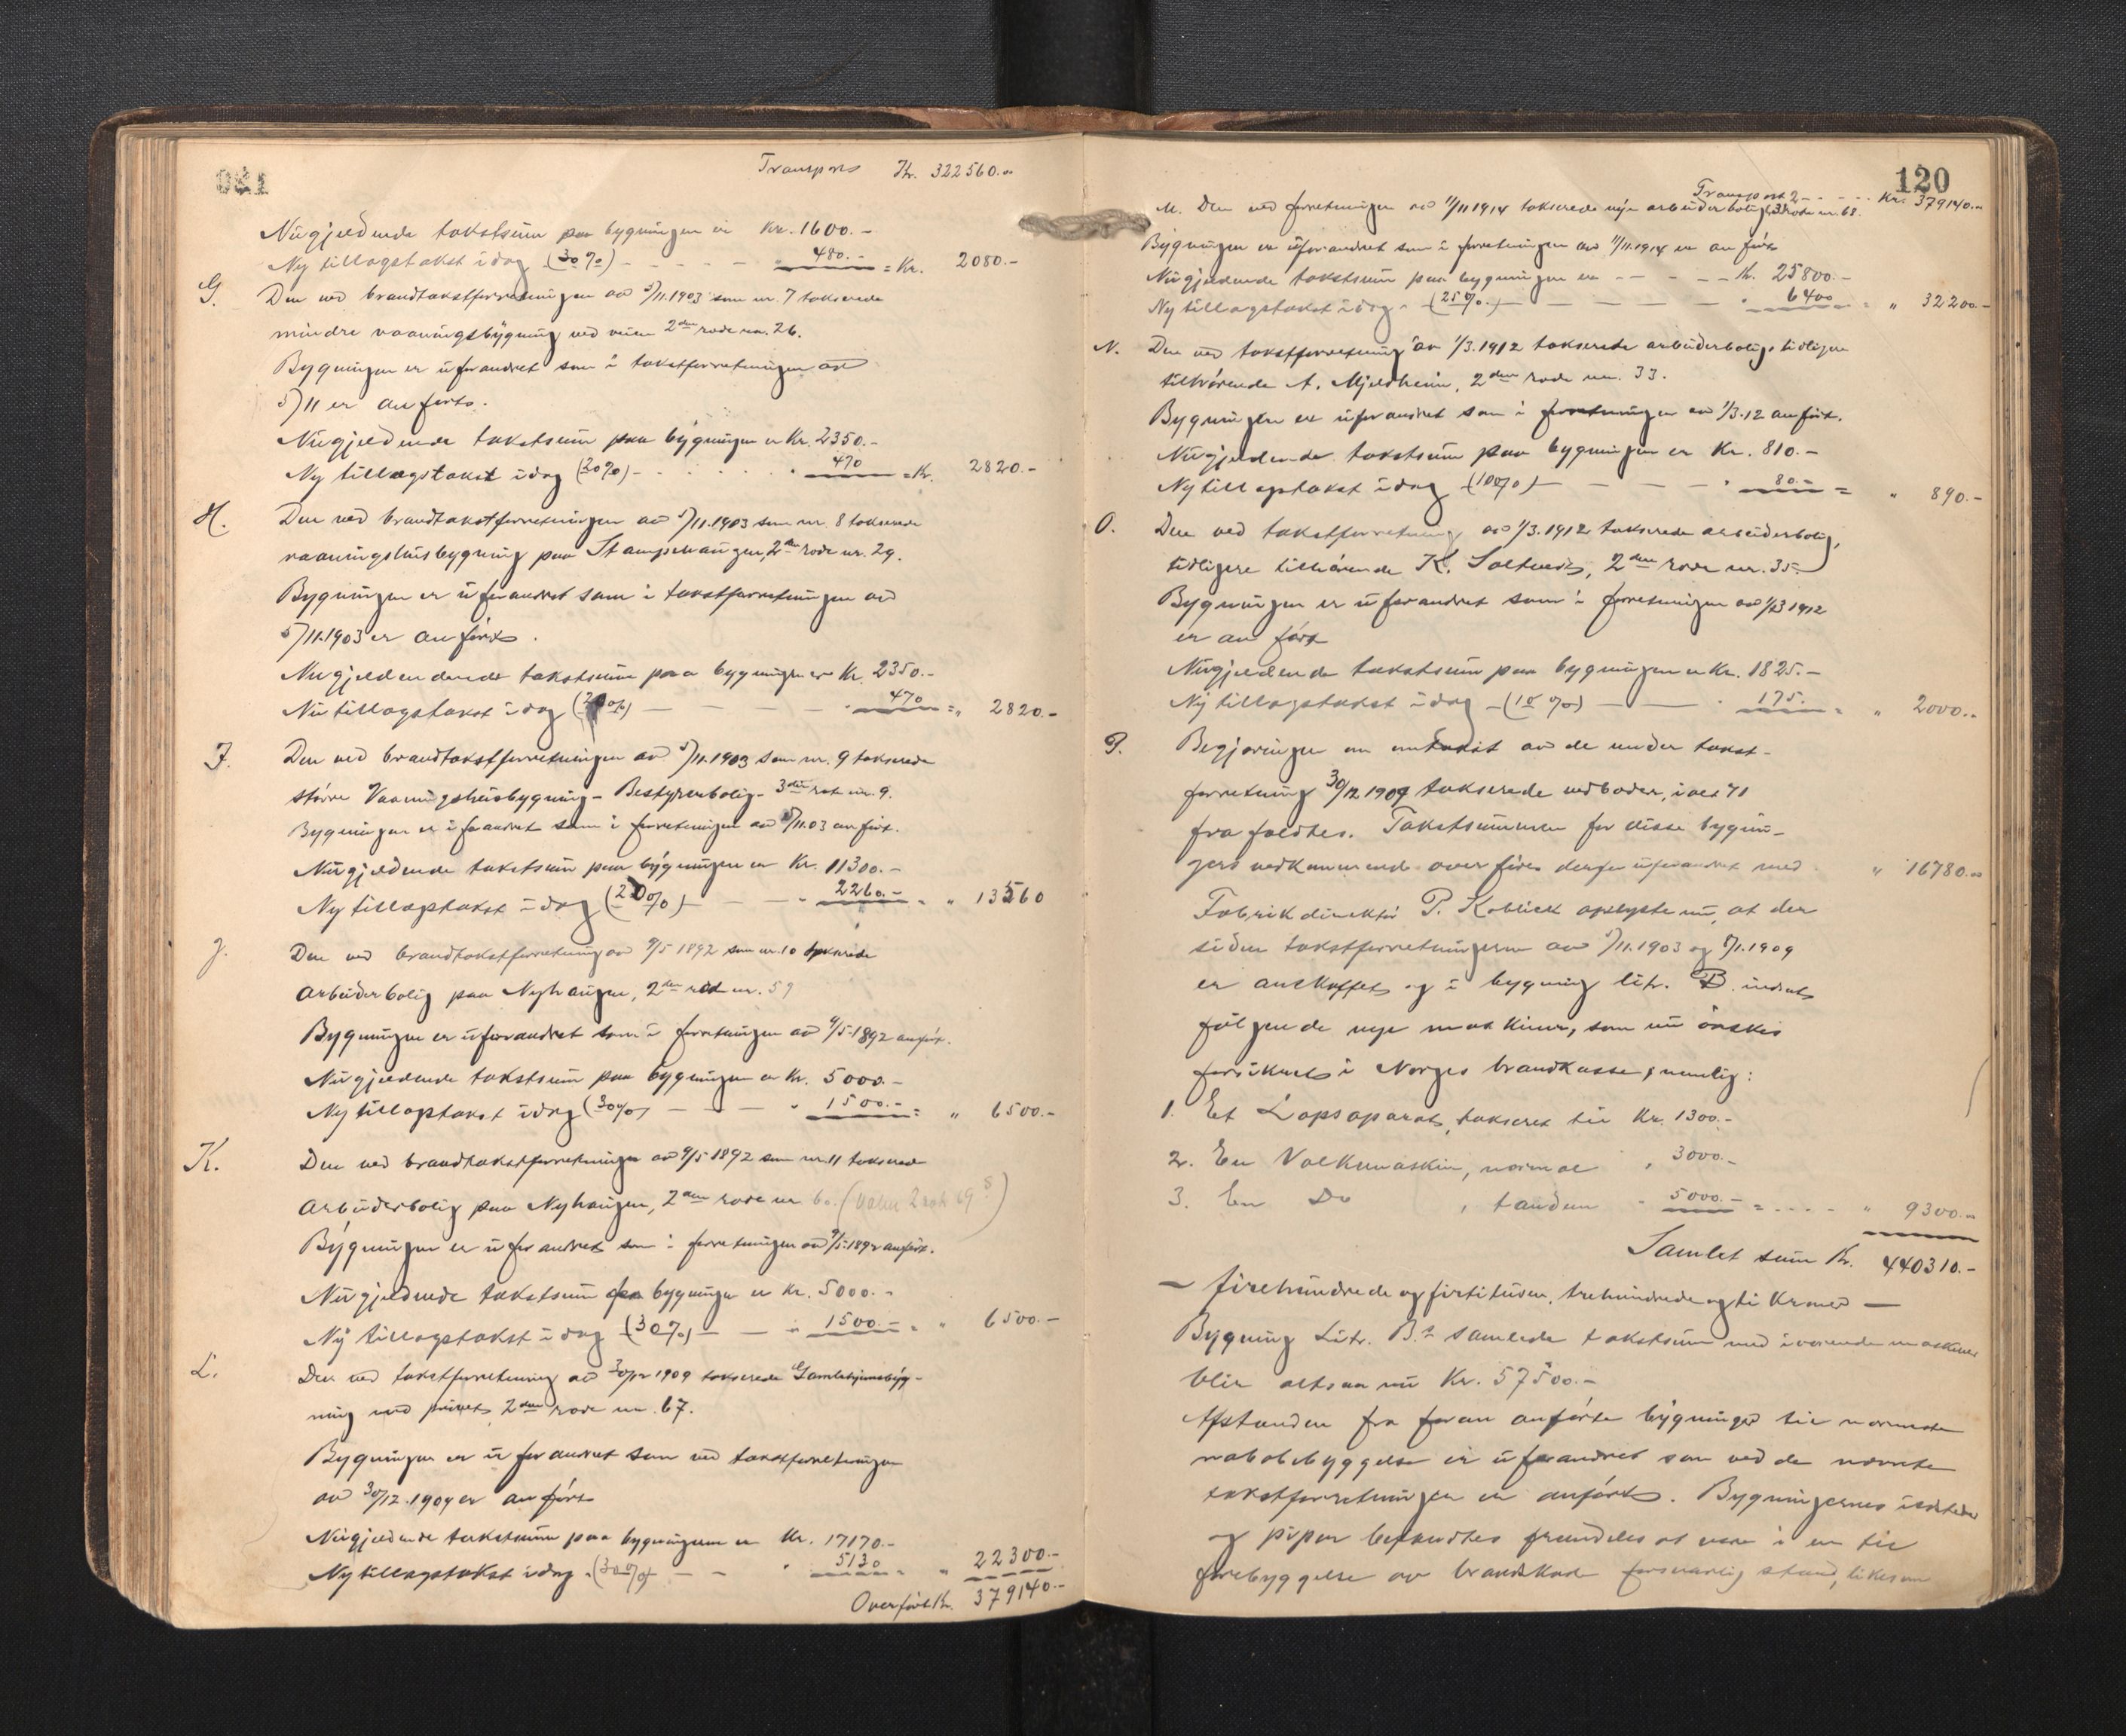 Transport Kr. 322560.00
Nugjeldende takstsum paa bygningen er Kr. 1600.-
Ny tillagstakst idag (30%) - - - - " 480.- = Kr. 2080.-
G. Den ved brandtakstforretningen av 5/11.1903 som nr. 7 takserede
mindre vaaningsbygning ved veien 2den rode nr. 26.
Bygningen er uforandret som i takstforretningen av
5/11 er anført.
Nugjeldende takstsum paa bygningen er Kr. 2350.-
Ny tillagstakst idag (20%) - - - - " 470 = Kr. 2820.-
H. Den ved brandtakstforretningen av 5/11.1903 som nr. 8 takserede
vaaningshusbygning paa Stampehaugen, 2den rode nr. 29.
Bygningen er uforandret som i takstforretningen av
5/11.1903 er anført.
Nugjeldendende takstsum paa bygningen er Kr. 2350.-
Nu tillagstakst idag (20%) — — — — " 470 = " 2820.-
I. Den ved brandtakstforretningen av 5/11.1903 som nr. 9 takserede
større Vaaningshusbygning - Bestyrerbolig - 3die rode nr. 9.
Bygningen er uforandret som i forretningen av 5/11.03 anført.
Nugjeldende takstsum paa bygningen er Kr. 11300.-
Ny tillagstakst idag (20%) — — " 2260.- = " 13560
J. Den ved brandtakstforretning av 9/5 1892 som nr. 10 takserede
Arbeiderbolig paa Nyhaugen, 2den rode nr. 59
Bygningen er uforandret som i forretningen av 9/5.1892 anført.
Nugjeldende takstsum paa bygningen er Kr. 5000.-
Ny tillagstakst idag (30%) — — — " 1500.- = " 6500.-
K. Den ved brandtakstforretningen av 9/5 1892 som nr. 11 takserede
Arbeiderbolig paa Nyhaugen, 2den rode nr 60. ( 2 rode 69 )
Bygningen er uforandret som i forretningen av 9/5.1892 anført.
Nugjeldende takstsum paa bygningen er Kr. 5000.-
Ny tillagstakst idag (30%) — — " 1500.- = " 6500.-
L. Den ved takstforretning av 30/12 1909 takserede Gamlehjemsbyg-
ning med privet, 2den rode nr. 67.
Bygningen er uforandret som ved takstforretningen
av 30/12.1909 er anført
Nugjeldende takstsum paa bygningerne er Kr. 17170.-
Ny tillagstakst idag (30%) — — " 5130 = " 22300.-
Overført Kr. 379140.-
120
Transport 2 - - - - Kr. 379140.00
M. Den ved forretningen av 11/11 1914 takserede nye arbeiderbolig, 3 rode nr. 68.
Bygningen er uforandret som i forretningen av 11/11.1914 er anført
Nugjeldende takstsum paa bygningen er — — — Kr. 25800.-
Ny tillagstakst idag (25%) — — — — " 6400 = " 32200.-
N. Den ved takstforretning av 1/3.1912 takserede arbeiderbolig, tidligere
tilhørende A. Mjeldheim, 2den rode nr. 33.
Bygningen er uforandret som i forretningen av 1/3.12 anført.
Nugjeldende takstsum paa bygningen er Kr. 810.-
Ny tillagstakst idag (10%) — — — " 80.- = " 890.-
O. Den ved takstforretning av 1/3.1912 takserede arbeiderbolig,
tidligere tilhørende K. Saltveit, 2den rode nr. 35.
Bygningen er uforandret som i forretningen av 1/3 1912
er anført
Nugjeldende takstsum paa bygningen er Kr. 1825.-
Ny tillagstakst idag (10%) — — " 175. = " 2000.-
P. Begjæringen om omtakst av de under takst-
forretning 30/12 1909 takserede vedboder, i alt 41
frafaldtes. Takstsummen for disse bygnin-
gers vedkommende overføres derfor uforandret med " 16780.00
Fabrikdirektør P. Koblick oplyste nu, at der
siden takstforretningerne av 5/11.1903 og 8/1.1909
er anskaffet og i bygning litr. B. indsat
følgende nye maskiner, som nu ønskes
forsikret i Norges brandkasse, nemlig:
1. Et Lapsaparat, takseret til Kr. 1300.-
2. En Valkemaskin, normal " 3000.-
3. En Do , tandem " 5000.- = - - - - " 9300.-
Samlet sum Kr. 440310.-
— firehundrede og firtitusen, trehundrede og ti Kroner —
Bygning Litr. B.s samlede takstsum med iværende maskiner
blir altsaa nu Kr. 57500.-
Afstanden fra foran anførte bygninger til nærmeste
nabobebyggelse er uforandret som ved de nævnte
takstforretninger er anført. Bygningernes ildsteder
og piper befandtes fremdeles at være i en til
forebyggelse av brandskade forsvarlig stand, likesom